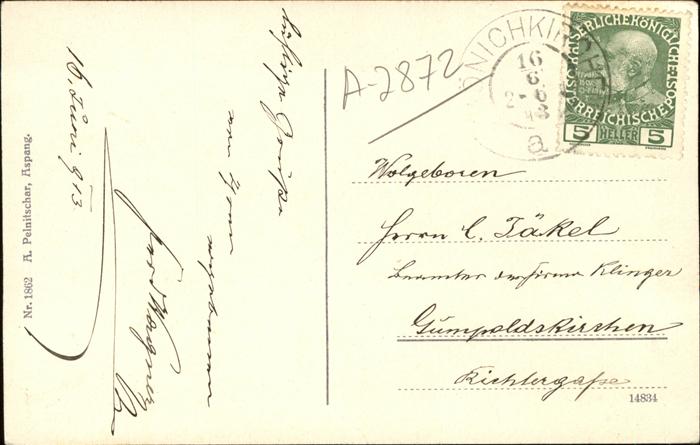 16. Juni 913
herzliche Grüße
von Ihrem
ergebenen
Nr. 1862 A. Pelnitschar, Aspang.
A-2872
MÖNICHKIRCHEN
16
6
2-6
13
a
KAISERLICHE KÖNIGLICHE
ÖSTERREICHISCHE POST
5 HELLER 5
Wolgeboren
Herrn C. Täkel
Beamter der Firma Klinger
Gumpoldskirchen
Kirchengasse
14834